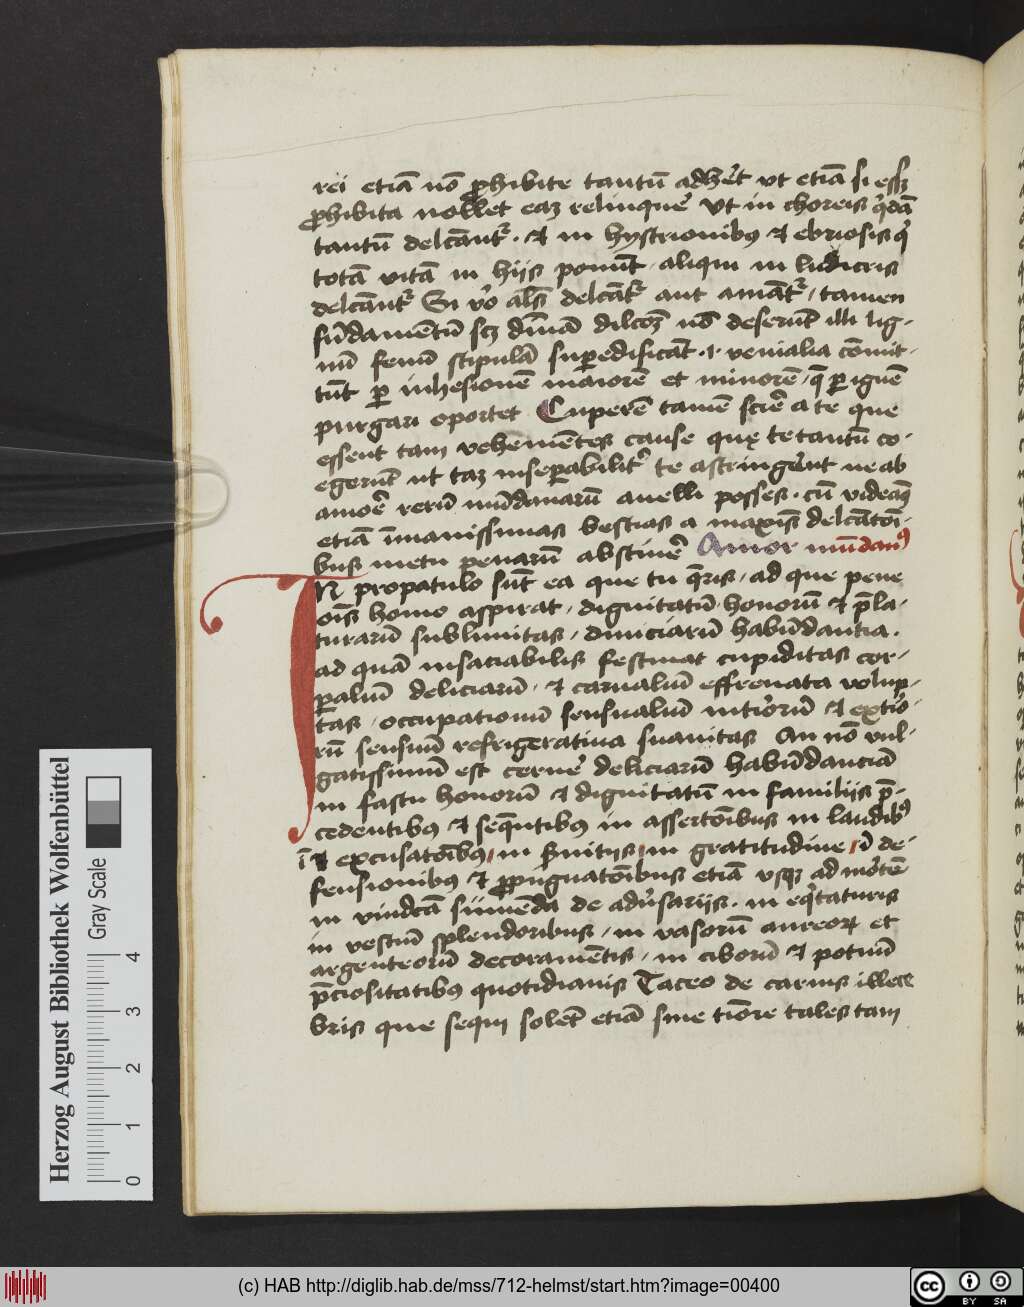 rei etiā nō ꝓhibite tantū adhēt vt etiā si essꝫ
ꝓhibita nollet eaꝫ relinque᷑ vt in choreis q̇dā
tantū delcānt᷑ · ⁊ in hystrionibꝰ ⁊ ebriosis q̇
totā vitā in hijs ponūt aliqui in ludicris
delcānt᷑ Si v̓o als̄ delcāt᷑ aut amāt᷑ / tamen
fūdamētū scꝫ diuīā dilcōꝫ nō deserūt illi lig-
nū fenū stipulā suꝑedificāt ·i· venialia cōmit-
tūt ꝑ inhesionē maiorē et minorē / q̄ ꝑ iguē
purgari oportet Cuperē tamē scire᷑ a te que
essent tam vehemētes cause quę te tantū co-
egerūt ut taꝫ inseꝑabilit᷑ te astringerēt ne ab
amoē rerū mūdanarū auelli posses · cū videaꝫ
etiā īmanissimas bestias a maxis̄ delcātōi-
bus metu penarū abstine᷑ Amor mūdanꝰ
In propatulo sūt ea que tu q̄ris / ad que pene
oīs homo aspirat / dignitatū honorū ⁊ p̄la-
turarū sublimitas / diuiciarū habūdantia .
ad quā insaciabilis festinat cupiditas cor-
ꝑaliū deliciarū · ⁊ carnaliū effrenata volup-
tas / occupationū sensualiū inti᷑orū ⁊ exti᷑o-
rū sensuū refrigeratiua suauitas An nō vul-
gatissimū est cerne᷑ deliciarū habūdanciā
in fastu honorū ⁊ dignitatū in familijs p̄-
cedentibꝰ ⁊ seq̄ntibꝰ in assertōibus in laudibꝰ
ī excusatōibꝰ / in in gratitudine / ī de-
fensionibꝰ ⁊ ꝓpugnatōibus etiā vsqꝫ ad mortē
in vindcā sumēda de adu᷑sarijs · in eq̇taturis
in vestiū splendoribus / in vasorū aureoꝝ et
argenteorū decoramētis / in ciborū ⁊ potuū
p̄ciositatibꝰ quotidianis Taceo de carnis illece
bris que sequi solēt etiā sine tiōre tales tam
Herzog August Bibliothek Wolfenbüttel
Gray Scale
0 1 2 3 4
(c) HAB http://diglib.hab.de/mss/712-helmst/start.htm?image=00400
cc BY SA